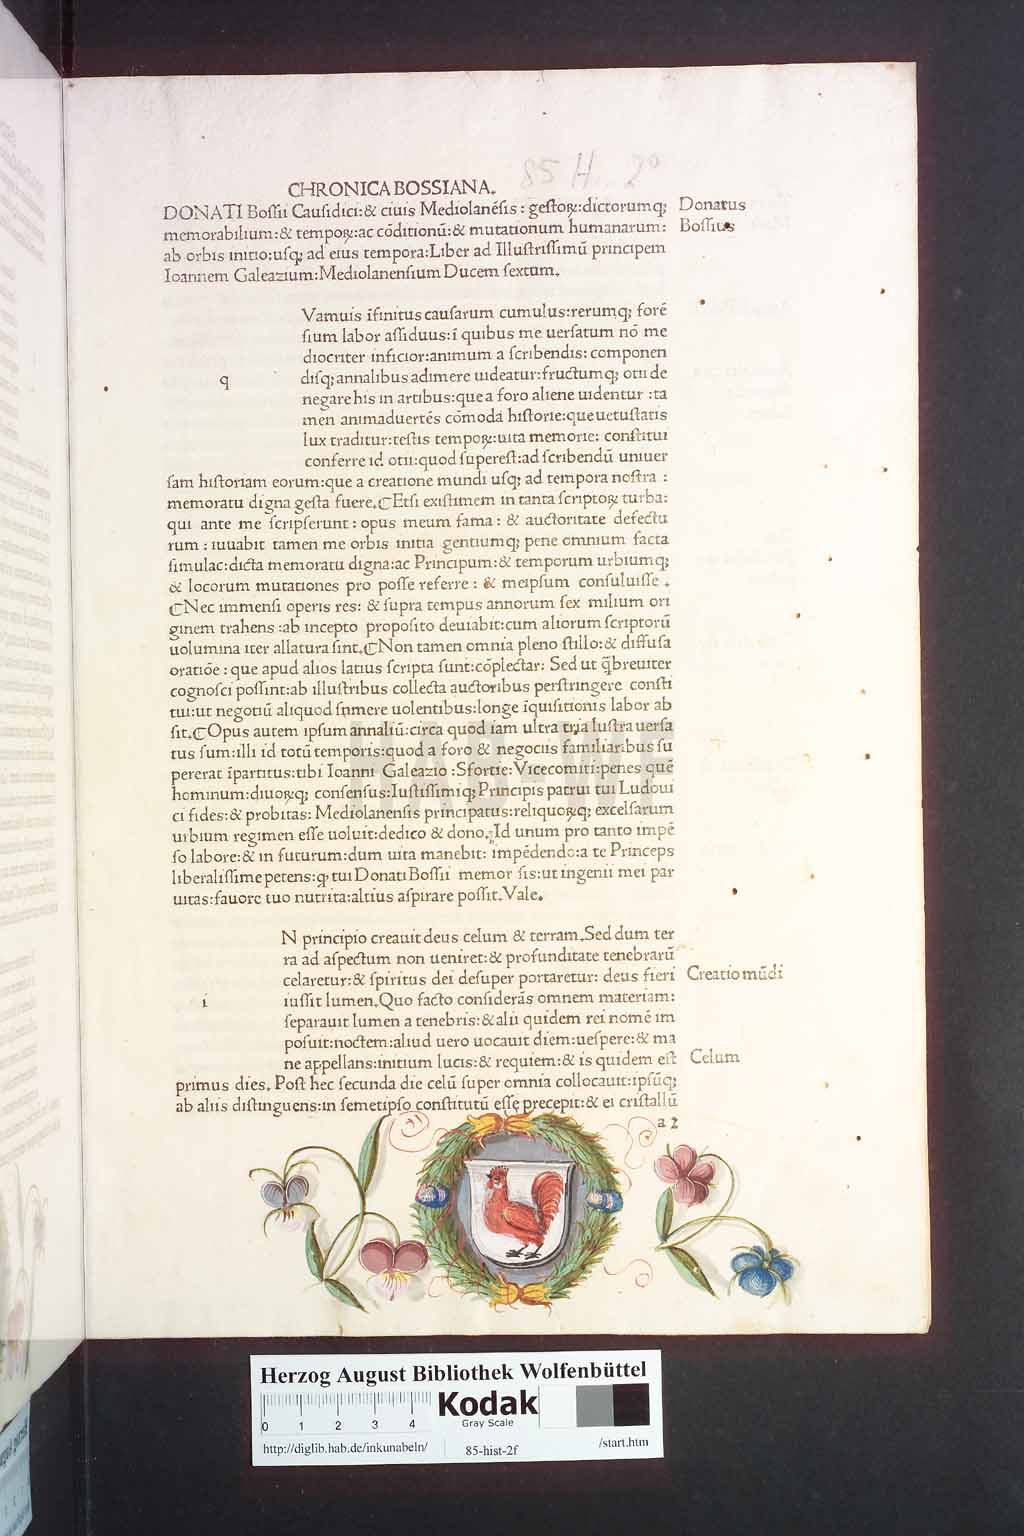 85 H. 2°
CHRONICA BOSSIANA.
DONATI Bossii Causidici:& ciuis Mediolanẽsis : gestoꝝ:dictorumq;
memorabilium:& tempoꝝ:ac cõditionũ:& mutationum humanarum:
ab orbis initio:usq; ad eius tempora:Liber ad Illustrissimũ principem
Ioannem Galeazium:Mediolanensium Ducem sextum.
Donatus
Bossius
q
Vamuis ĩfinitus causarum cumulus:rerumq; forẽ
sium labor assiduus:ĩ quibus me uersatum nõ me
diocriter inficior:animum a scribendis: componen
disq; annalibus adimere uideatur:fructumq; otii de
negare his in artibus:que a foro aliene uidentur :ta
men animaduertẽs cõmoda historie:que uetustatis
lux traditur:testis tempoꝝ:uita memorie: constitui
conferre id otii:quod superest:ad scribendũ uniuer
sam historiam eorum:que a creatione mundi usq; ad tempora nostra :
memoratu digna gesta fuere.⸿Etsi existimem in tanta scriptoꝝ turba:
qui ante me scripserunt : opus meum fama : & auctoritate defectu
rum : iuuabit tamen me orbis initia gentiumq; pene omnium facta
simulac:dicta memoratu digna:ac Principum:& temporum urbiumq;
& locorum mutationes pro posse referre : & meipsum consuluisse .
⸿Nec immensi operis res: & supra tempus annorum sex milium ori
ginem trahens :ab incepto proposito deuiabit:cum aliorum scriptorũ
uolumina iter allatura sint.⸿Non tamen omnia pleno stillo:& diffusa
oratiõe : que apud alios latius scripta sunt:cõplectar: Sed ut q̃breuiter
cognosci possint:ab illustribus collecta auctoribus perstringere consti
tui:ut negotiũ aliquod sumere uolentibus:longe ĩquisitionis labor ab
sit.⸿Opus autem ipsum annaliũ:circa quod iam ultra tria lustra uersa
tus sum:illi id totũ temporis:quod a foro & negociis familiaribus su
pererat ĩpartitus:tibi Ioanni Galeazio :Sfortie:Vicecomiti:penes quẽ
hominum:diuoꝝq; consensus:Iustissimiq; Principis patrui tui Ludoui
ci fides:& probitas: Mediolanensis principatus:reliquoꝝq; excelsarum
urbium regimen esse uoluit:dedico & dono. Id unum pro tanto impẽ
so labore:& in futurum:dum uita manebit: impẽdendo:a te Princeps
liberalissime petens:ꝙ tui Donati Bossii memor sis:ut ingenii mei par
uitas:fauore tuo nutrita:altius aspirare possit.Vale.
i
N principio creauit deus celum & terram.Sed dum ter
ra ad aspectum non ueniret:& profunditate tenebrarũ
celaretur:& spiritus dei desuper portaretur: deus fieri
iussit lumen.Quo facto considerãs omnem materiam:
separauit lumen a tenebris:& alii quidem rei nomẽ im
posuit:noctem:aliud uero uocauit diem:uespere:& ma
ne appellans:initium lucis:& requiem:& is quidem est
primus dies. Post hec secunda die celũ super omnia collocauit:ipsũq;
ab aliis distinguens:in semetipso constitutũ esse precepit:& ei cristallũ
Creatio mũdi
Celum
a 2
HAB-WF
Herzog August Bibliothek Wolfenbüttel
0 1 2 3 4
Kodak
Gray Scale
http://diglib.hab.de/inkunabeln/ 85-hist-2f /start.htm